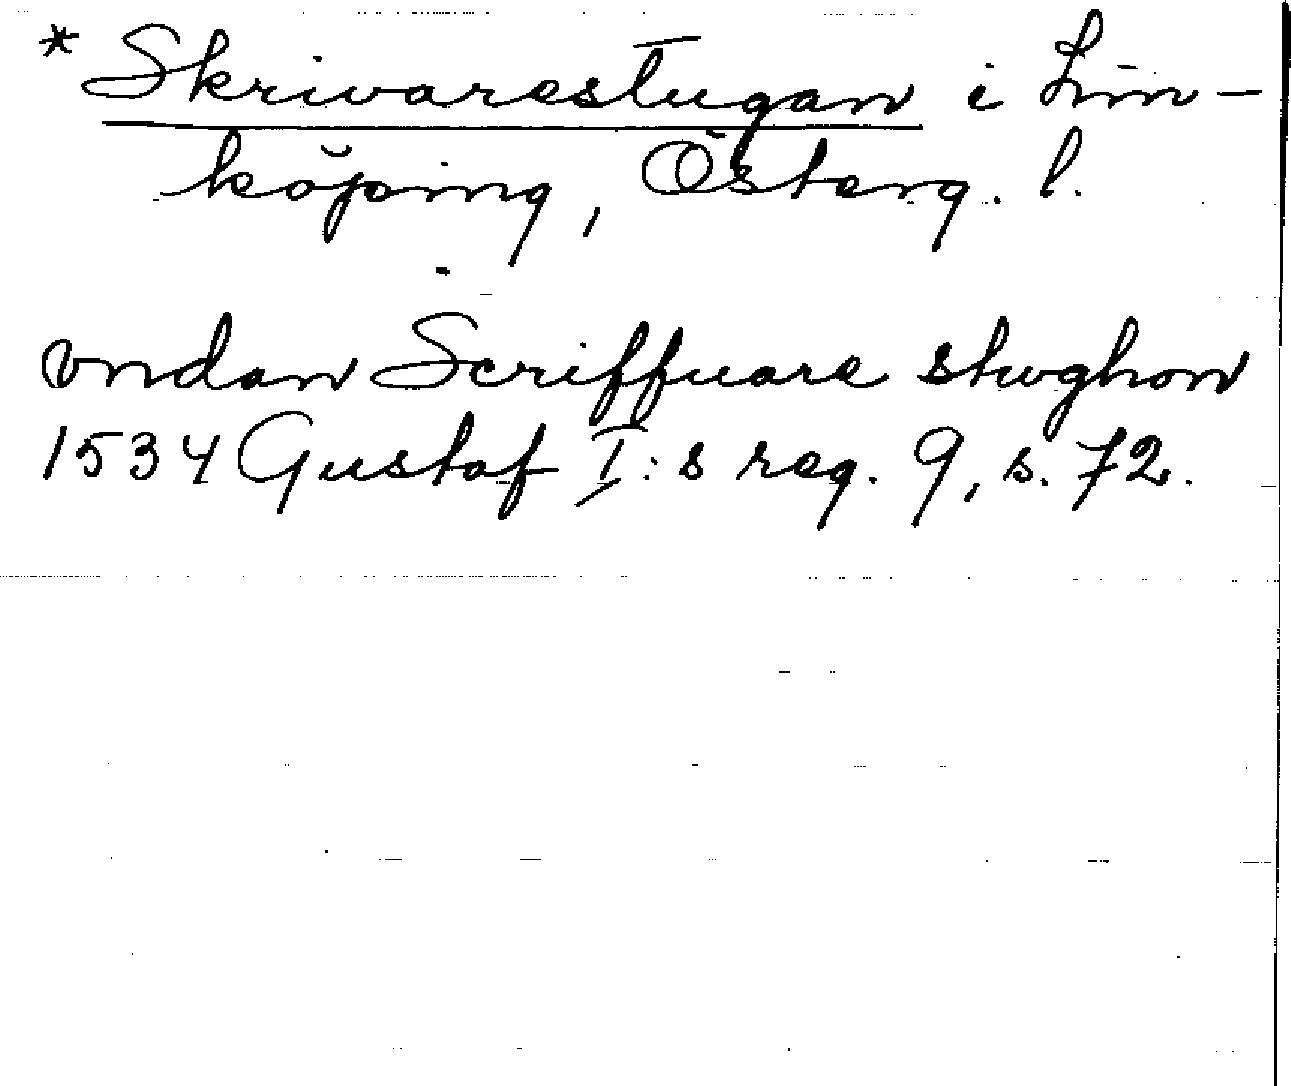 *Skrivarestugan i Lin-
köping, Österg. l.
vndan Scriffuare stwghon
1534 Gustaf I:s reg. 9, s. 72.